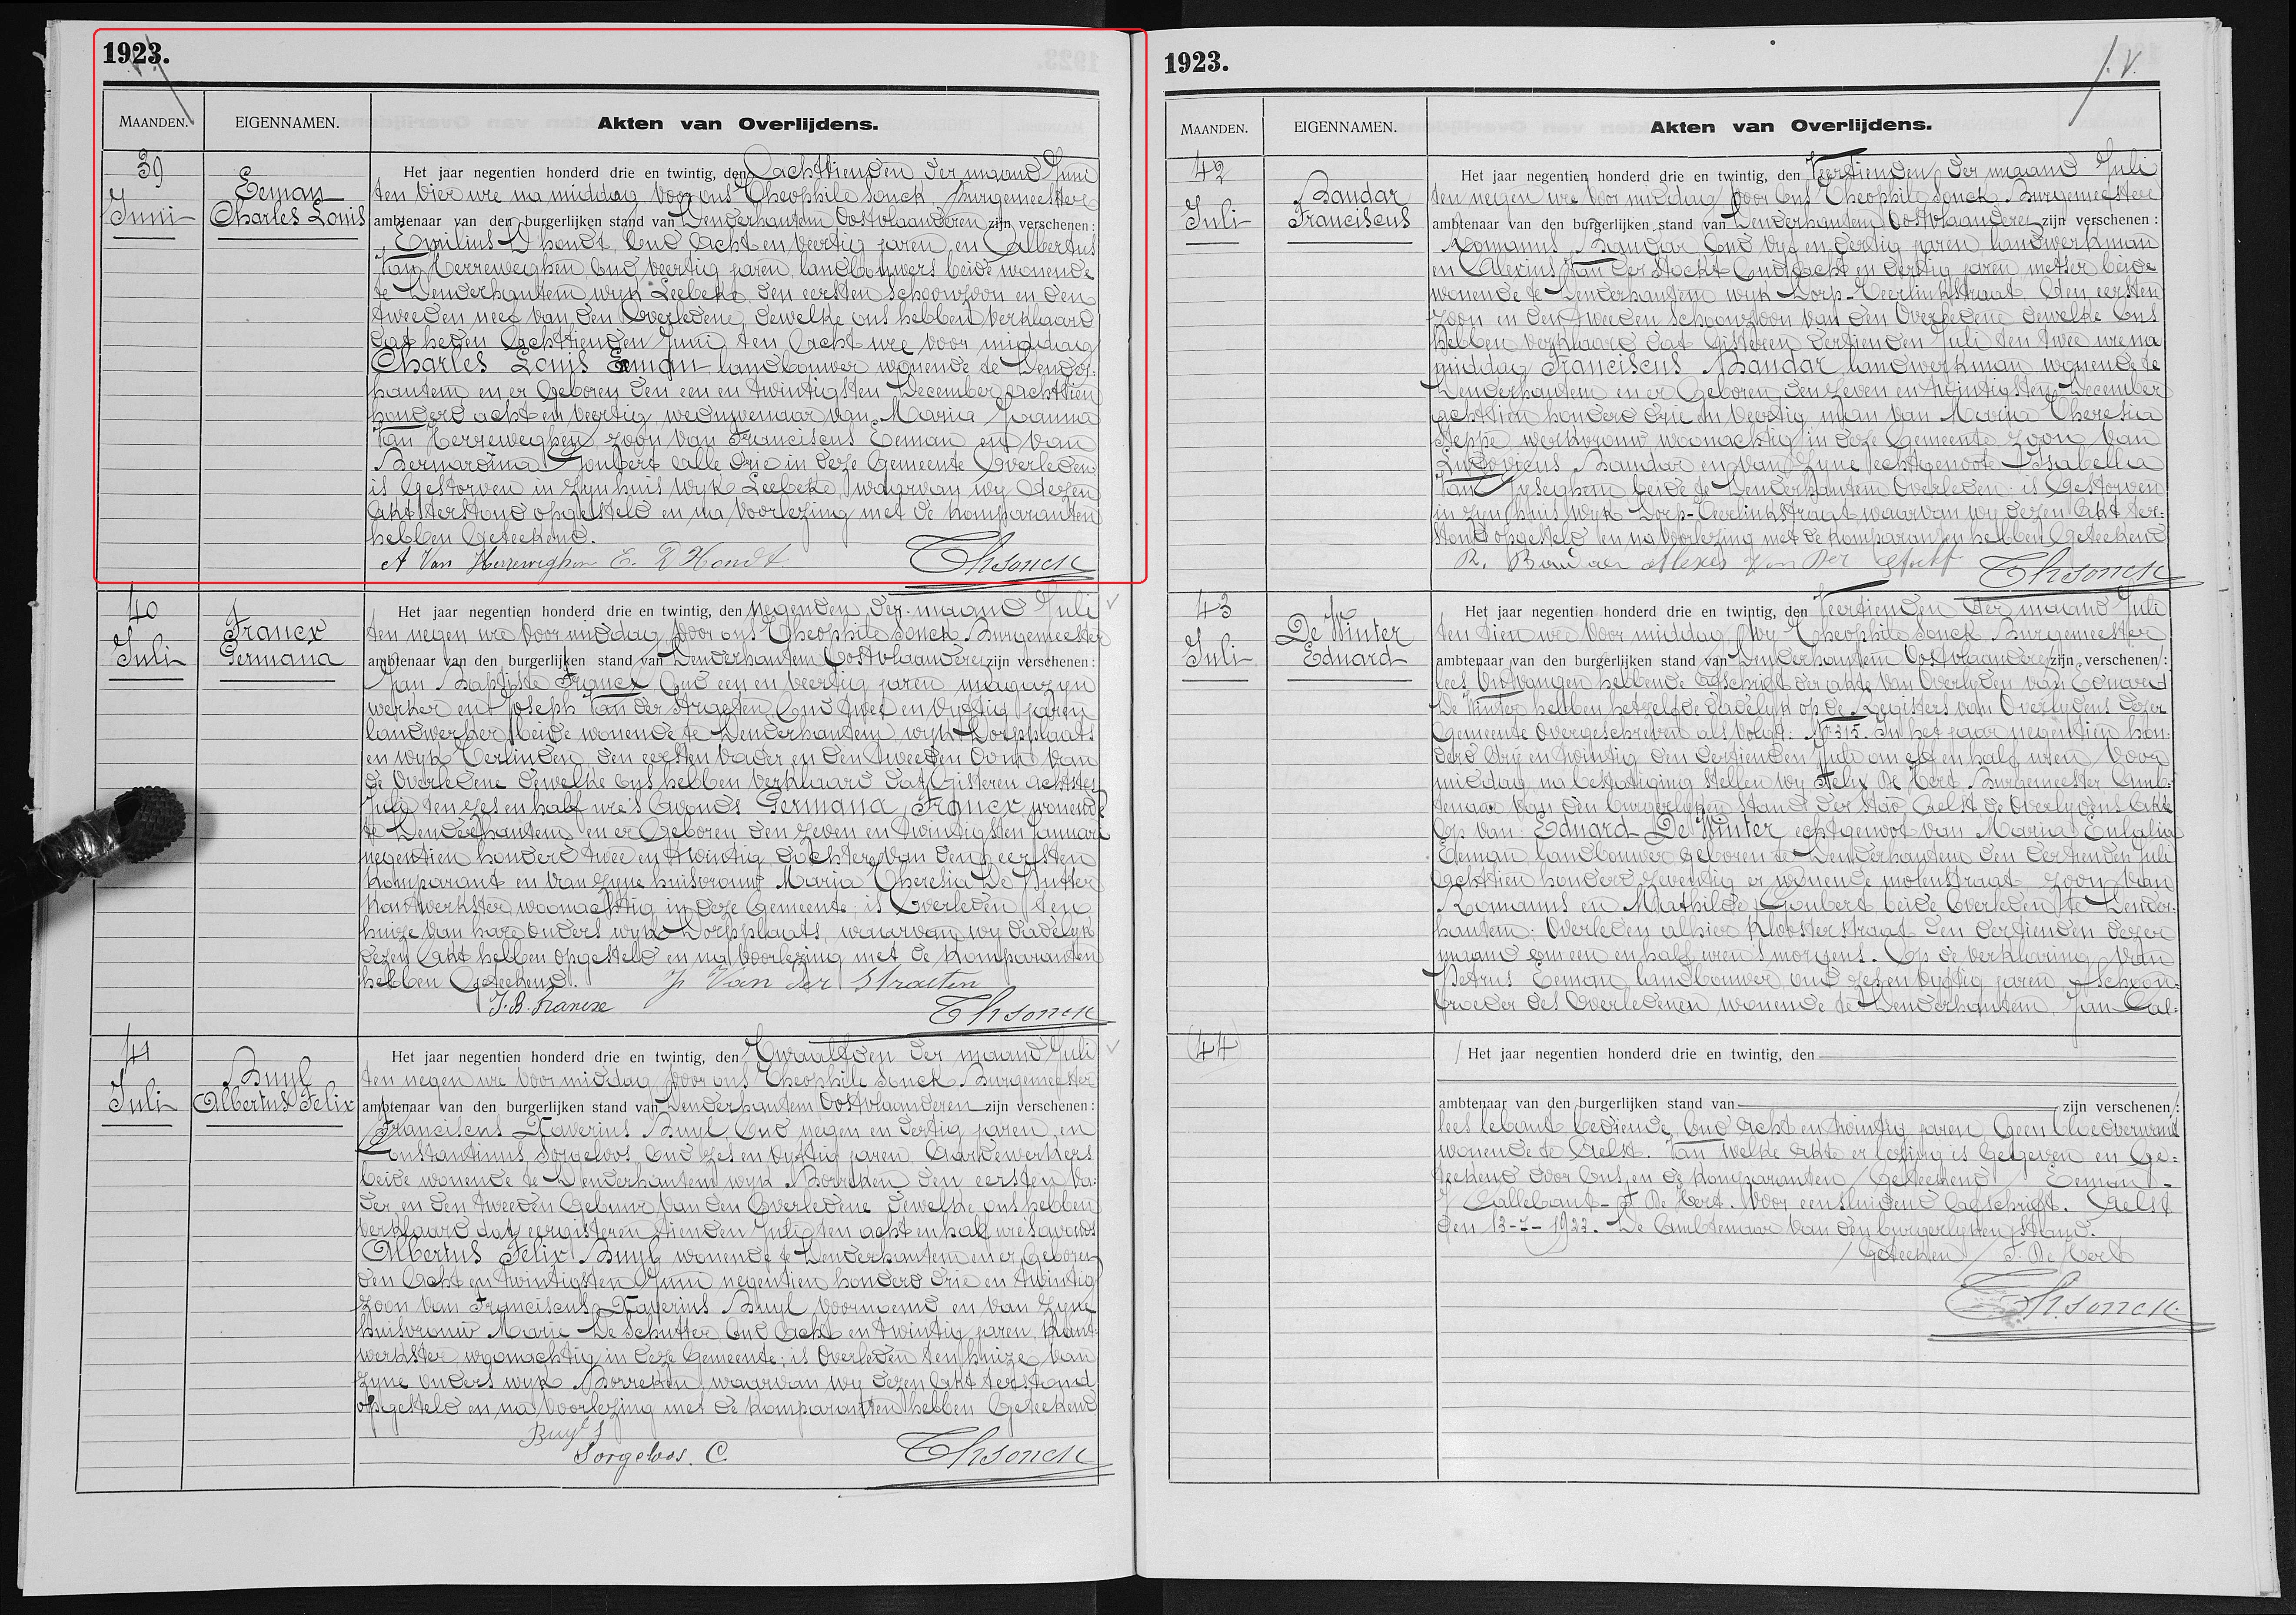 1923.
MAANDEN.
EIGENNAMEN.
Akten van Overlijdens.
39
Juni
Eeman
Charles Louis
Het jaar negentien honderd drie en twintig, den achttienden der maand Juni
ten vier ure na middag voor ons Theophile Sonck, Burgemeester
ambtenaar van den burgerlijken stand van Denderhautem Oostvlaanderen zijn verschenen:
Emilius D'hondt, oud acht en veertig jaren, en Albertus
Van Herreweghen oud veertig jaren, landbouwers beide wonende
te Denderhautem wyk Leebeke, den eersten schoonzoon en den
tweeden neef van den Overledene, dewelke ons hebben verklaard
dat heden achttienden Juni ten acht ure voor middag
Charles Louis Eeman landbouwer wonende te Dender-
hautem en er geboren den een en twintigsten December achttien
honderd acht en veertig, weduwenaar van Maria Joanna
Van Herreweghen zoon van Franciscus Eeman en van
Bernardina Goubert alle drie in deze Gemeente Overleden;
is Gestorven in zyn huis wyk Leebeke, waarvan wy dezen
akt terstond opgesteld en na voorlezing met de komparanten
hebben Geteekend.
A Van Herreweghen E. D'Hondt. ThSonck
40
Juli
Francx
Germana
Het jaar negentien honderd drie en twintig, den negenden der maand Juli
ten negen ure voor middag, voor ons Theophile Sonck, Burgemeester
ambtenaar van den burgerlijken stand van Denderhautem Oostvlaanderen zijn verschenen:
Jan Baptiste Francx oud een en veertig jaren magazyn
werker en Joseph Van der Straeten oud twee en vyftig jaren
landwerker beide wonende te Denderhautem, wyk Dorpplaats
en wyk Eerlinden, den eersten vader en den tweeden Oom van
de Overledene dewelke ons hebben verklaard dat Gisteren achtsten
Juli ten zes en half ure 's avonds Germana Francx wonende
te Denderhautem en er Geboren den zeven en twintigsten Januari
negentien honderd twee en twintig, dochter van den eersten
komparant en van zyne huisvrouw Maria Theresia De Sutter
kantwerkster, woonachtig in deze Gemeente; is Overleden ten
huize van hare ouders wyk Dorpplaats, waarvan wy dadelyk
dezen akt hebben opgesteld en na voorlezing met de komparanten
hebben Geteekend. J Van der Straeten
J.B. Francx ThSonck
41
Juli
Buyl
Albertus Felix
Het jaar negentien honderd drie en twintig, den twaalfden der maand Juli
ten negen ure voor middag, voor ons Theophile Sonck Burgemeester
ambtenaar van den burgerlijken stand van Denderhautem Oostvlaanderen zijn verschenen:
Franciscus Xaverius Buyl, oud negen en dertig jaren en
Constantinus Sorgeloos oud zes en vyftig jaren, aardewerkers
beide wonende te Denderhautem wyk Borreken den eersten va-
der en den tweeden Gebuur van den Overledene dewelke ons hebben
verklaard dat eergisteren tienden Juli ten acht en half ure 's avonds
Albertus Felix Buyl wonende te Denderhautem en er Geboren
den acht en twintigsten Juni negentien honderd drie en twintig
zoon van Franciscus Xaverius Buyl voornoemd en van zyne
huisvrouw Marie De Schutter, oud acht en twintig jaren, kant-
werkster, woonachtig in deze Gemeente; is Overleden ten huize van
zyne ouders wyk Borreken, waarvan wy dezen akt terstond
opgesteld en na voorlezing met de komparanten hebben Geteekend
Buyl
Sorgeloos. C. ThSonck
1923.
1. V.
MAANDEN.
EIGENNAMEN.
Akten van Overlijdens.
42
Juli
Baudar
Franciscus
Het jaar negentien honderd drie en twintig, den Veertienden der maand Juli
ten negen ure voor middag voor ons Theophile Sonck Burgemeester
ambtenaar van den burgerlijken stand van Denderhautem Oostvlaanderen zijn verschenen:
Romanus Baudar oud vyf en dertig jaren, landwerkman
en Alexius Van der Stockt oud acht en dertig jaren metser beide
wonende te Denderhautem wyk Dorp-Eerlinkstraat, den eersten
zoon en den tweeden schoonzoon van den Overledene dewelke ons
hebben verklaard dat Gisteren dertienden Juli ten twee ure na
middag Franciscus Baudar, landwerkman wonende te
Denderhautem en er Geboren den zeven en twintigsten December
achttien honderd drie en veertig, man van Maria Theresia
Steppe werkvrouw woonachtig in deze Gemeente, zoon van
Ludovicus Baudar en van zyne echtgenoote Isabella
Van Yseghem beide te Denderhautem Overleden; is Gestorven
in zyn huis wyk Dorp-Eerlinkstraat, waarvan wy dezen akt ter-
stond opgesteld en na voorlezing met de komparanten hebben Geteekend
R. Baudar Alexis Van Der Stockt ThSonck
43
Juli
De Winter
Eduard
Het jaar negentien honderd drie en twintig, den Veertienden der maand Juli
ten tien ure voor middag, wy Theophile Sonck Burgemeester
ambtenaar van den burgerlijken stand van Denderhautem Oostvlaanderen / zijn verschenen /:
lees Ontvangen hebbende afschrift der akte van Overlyden van Eduard
De Winter hebben hetzelfde dadelyk op de Registers van Overlydens dezer
Gemeente overgeschreven als volgt: Nr 315. In het jaar negentien hon-
derd dry en twintig den dertienden Juli om elf en half uren voor
middag, na bestatiging stellen wy Felix De Hert, Burgemeester Amb-
tenaar van den burgerlyken stand der stad Aelst, de Overlydens akte
op van: Eduard De Winter echtgenoot van Maria Eulalia
Eeman landbouwer geboren te Denderhautem den dertienden Juli
achttien honderd zeventig er wonende molenstraat, zoon van
Romanus en Mathilde Goubert, beide Overleden te Dender-
hautem: Overleden alhier Kloosterstraat den dertienden dezer
maand om een en half uren 's morgens. Op de verklaring van
Petrus Eeman landbouwer oud zes en vyftig jaren, schoon-
broeder des Overledenen wonende te Denderhautem, Jan Cal-
(44)
/ Het jaar negentien honderd drie en twintig, den
ambtenaar van den burgerlijken stand van zijn verschenen /:
lees lebaut bediende, oud acht en twintig jaren, Geen bloedverwant
wonende te Aelst. Van welke akte er lezing is Gegeven en Ge-
teekend door ons en de komparanten / Geteekend / Eeman -
J Callebaut - F. De Hert. Voor eensluidend afschrift. Aelst
den 13-7-1923. De Ambtenaar van den burgerlyken stand.
/ Geteeken / F. De Hert
ThSonck